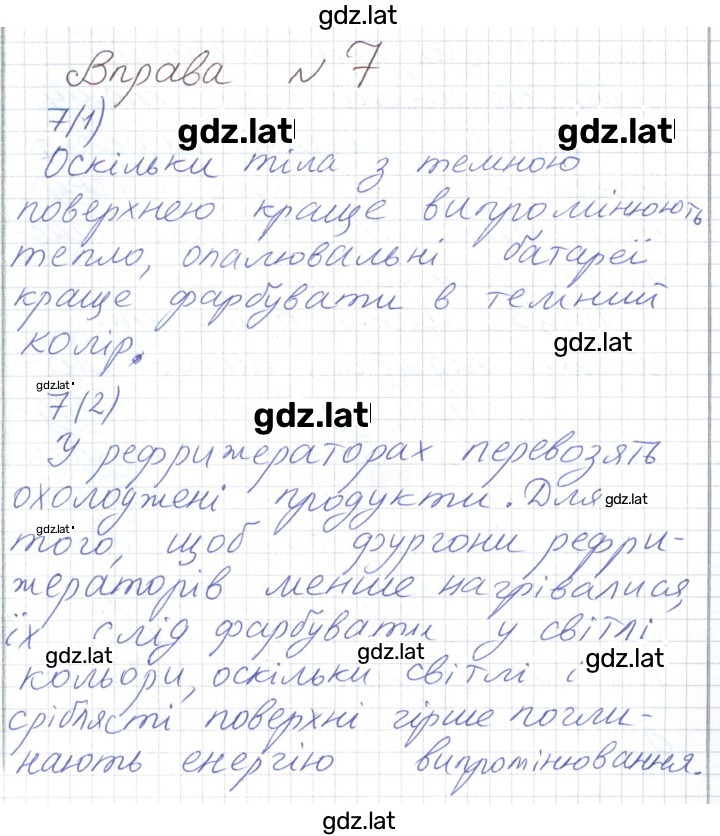 gdz.lat
Вправа № 7
7(1)
gdz.lat gdz.lat
Оскільки тіла з темною
поверхнею краще випромінюють
тепло, опалювальні батареї
краще фарбувати в темний
колір.
gdz.lat
gdz.lat
7(2)
gdz.lat
У рефрижераторах перевозять
охолоджені продукти. Для
gdz.lat
gdz.lat
того, щоб фургони рефри-
жераторів менше нагрівалися,
їх слід фарбувати у світлі
gdz.lat gdz.lat gdz.lat
кольори, оскільки світлі і
сріблясті поверхні гірше погли-
нають енергію випромінювання.
gdz.lat